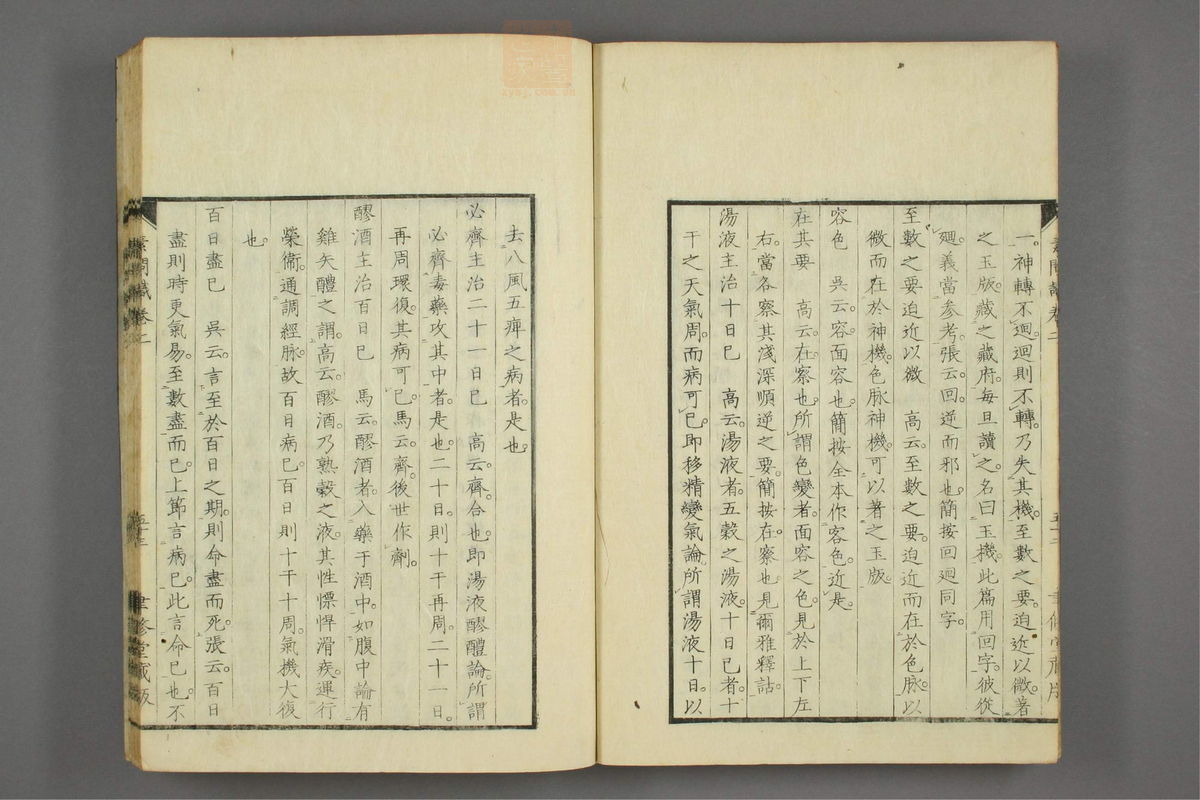 一神轉不迴迴則不轉乃失其機至數之要迫近以微著
之玉版藏之藏府每旦讀之名曰玉機此篇用回字彼從
迴義當參考張云回逆而邪也簡按回迴同字
至數之要迫近以微　高云至數之要迫近而在於色脉以
微而在於神機色脉神機可以著之玉版
容色　吳云容面容也簡按全本作客色近是
在其要　高云在察也所謂色變者面容之色見於上下左
右當各察其淺深順逆之要簡按在察也見爾雅釋詁
湯液主治十日已　高云湯液者五穀之湯液十日已者十
干之天氣周而病可已即移精變氣論所謂湯液十日以
去八風五痺之病者是也
必齊主治二十一日已　高云齊合也即湯液醪醴論所謂
必齊毒藥攻其中者是也二十日則十干再周二十一日
再周環復其病可已馬云齊後世作劑
醪酒主治百日已　馬云醪酒者入藥于酒中如腹中論有
雞矢醴之謂高云醪酒乃熟穀之液其性慓悍滑疾運行
榮衞通調經脉故百日病已百日則十干十周氣機大復
也
百日盡已　吳云言至於百日之期則命盡而死張云百日
盡則時更氣易至數盡而已上節言病已此言命已也不
素問識卷二
五十三
聿修堂藏版
zysj.com.cn